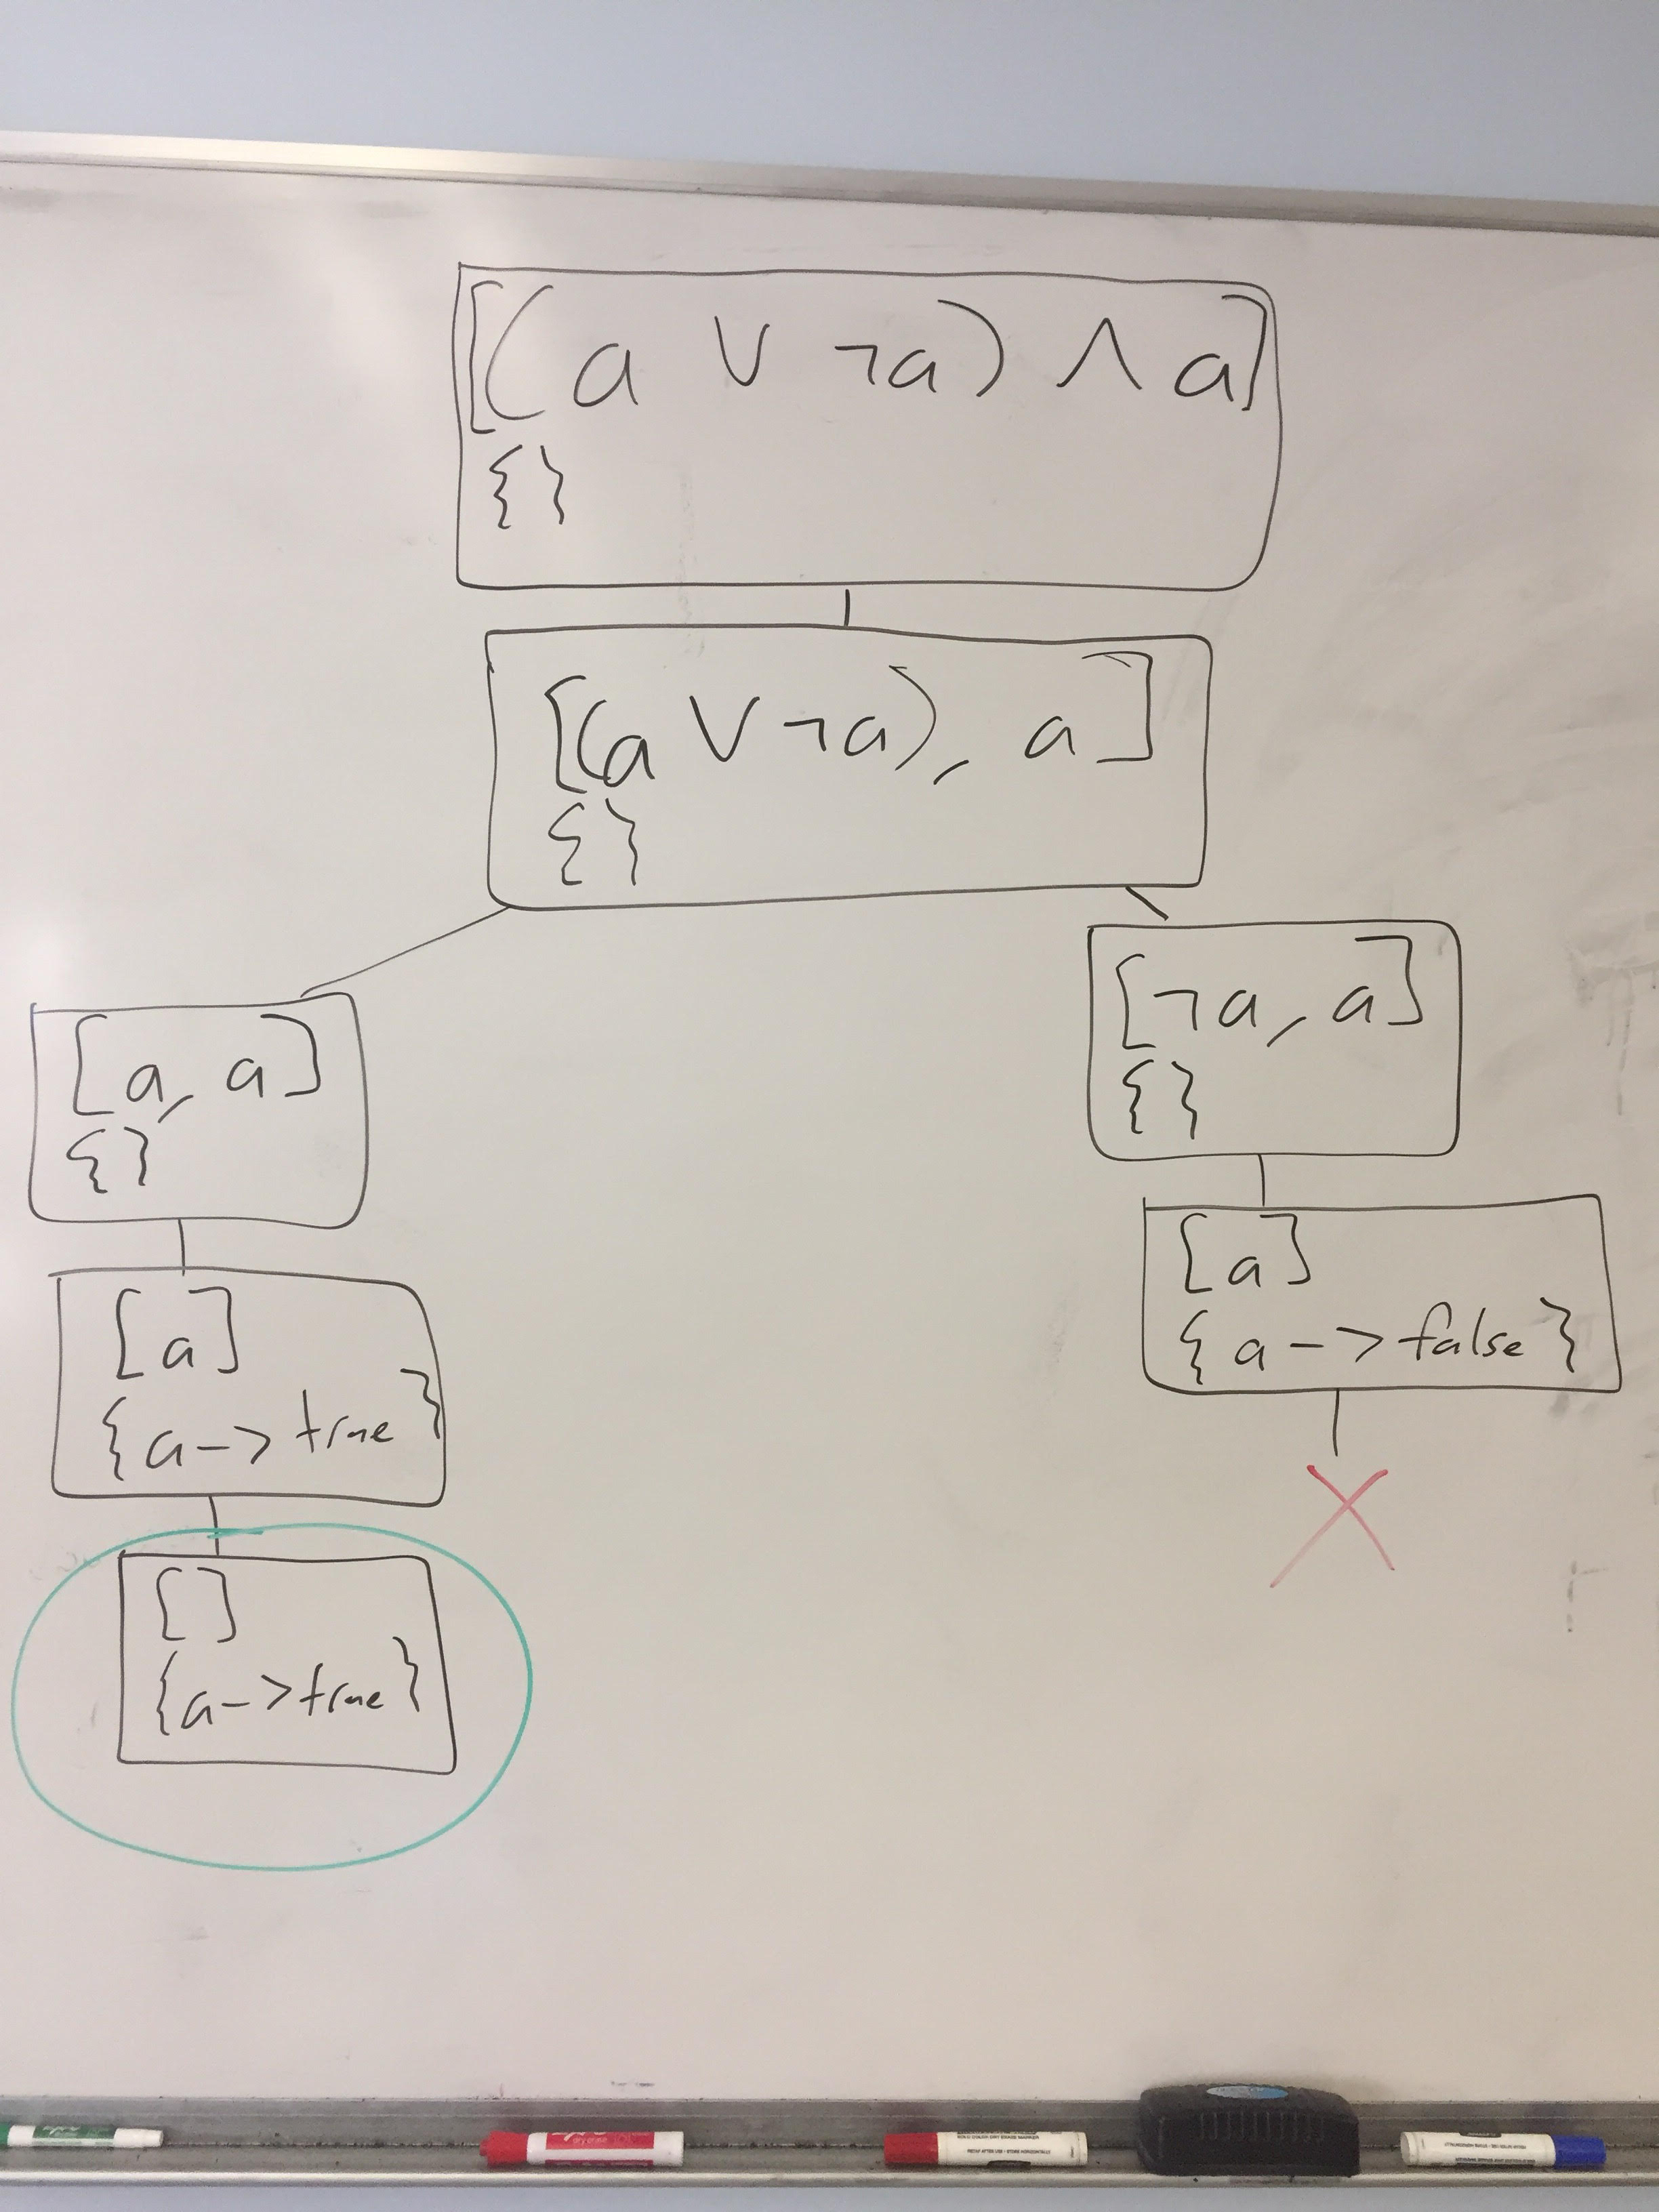 [(a ∨ ¬a) ∧ a]
{}
[(a ∨ ¬a), a]
{}
[a, a]
{}
[¬a, a]
{}
[a]
{a -> true}
[a]
{a -> false}
[]
{a -> true}